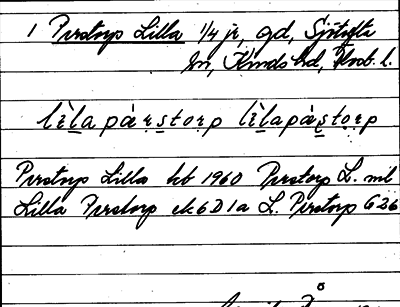 1 Perstorp Lilla 1/4 jr, gd, Sjötofta
sn, Kinds hd, Älvsb. l.
lìla pàrstorp lìlapàrstorp
Perstorp Lilla kb 1960 Perstorp L. ml
Lilla Perstorp ek 6D1a L. Perstorp G26